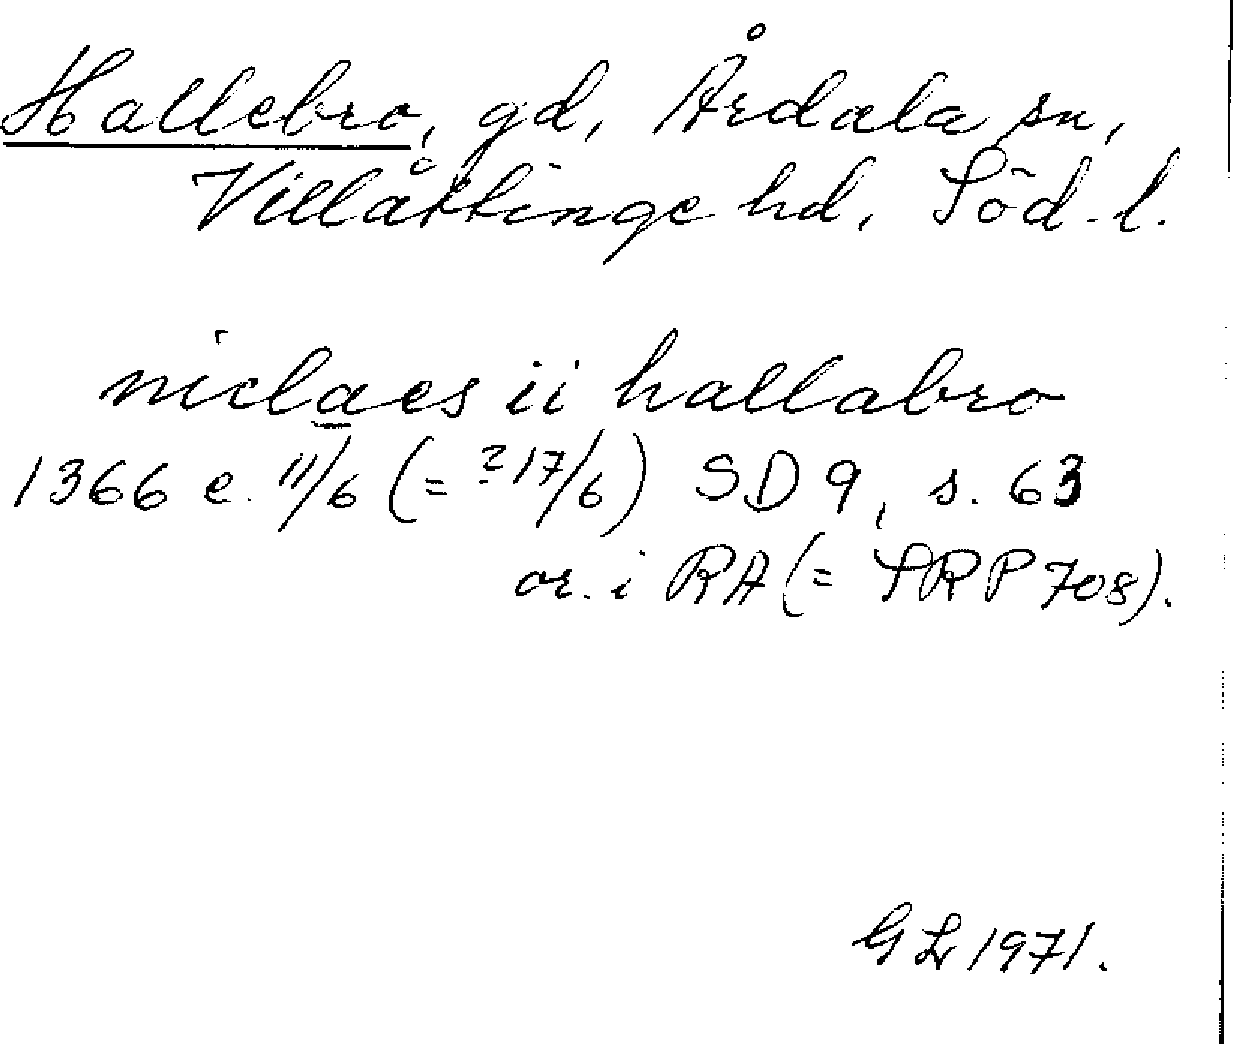 Hallebro, gd, Årdala sn,
Villåttinge hd, Söd.l.
niclaes ii hallabro
1366 e. 11/6 (= ?17/6) SD 9, s. 63
or. i RA (= SRP 708).
GL 1971.